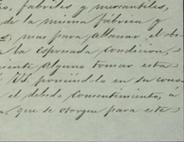 s, fabriles y mercantiles,
de la misma fábrica y
mas para allanar el ob
a la espresada condicion,
iente alguno tomar esta
Vd. poniéndolo en su cono
el debido consentimiento, á
que se otorgue para este